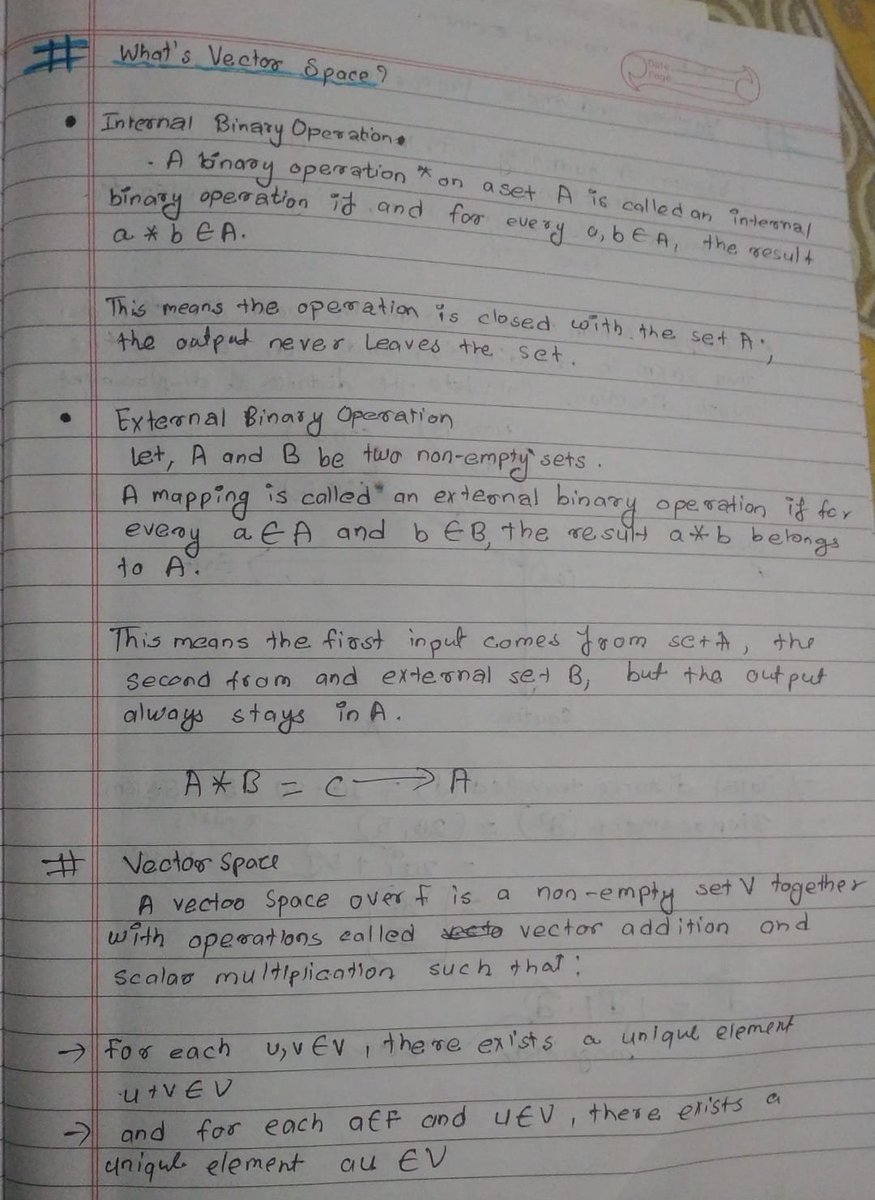 # What's Vector Space?
Date
Page
• Internal Binary Operation.
. A binary operation * on a set A is called an internal
binary operation if and for every a, b ∈ A, the result
a * b ∈ A.
This means the operation is closed with the set A;
the output never leaves the set.
• External Binary Operation
let, A and B be two non-empty sets.
A mapping is called an external binary operation if for
every a ∈ A and b ∈ B, the result a * b belongs
to A.
This means the first input comes from set A, the
second from and external set B, but the output
always stays in A.
A * B = C → A
# Vector Space
A vectoo Space over F is a non-empty set V together
with operations called vecto vector addition and
scalar multiplication such that:
→ for each u, v ∈ V, there exists a unique element
u + v ∈ V
→ and for each a ∈ F and u ∈ V, there exists a
unique element au ∈ V